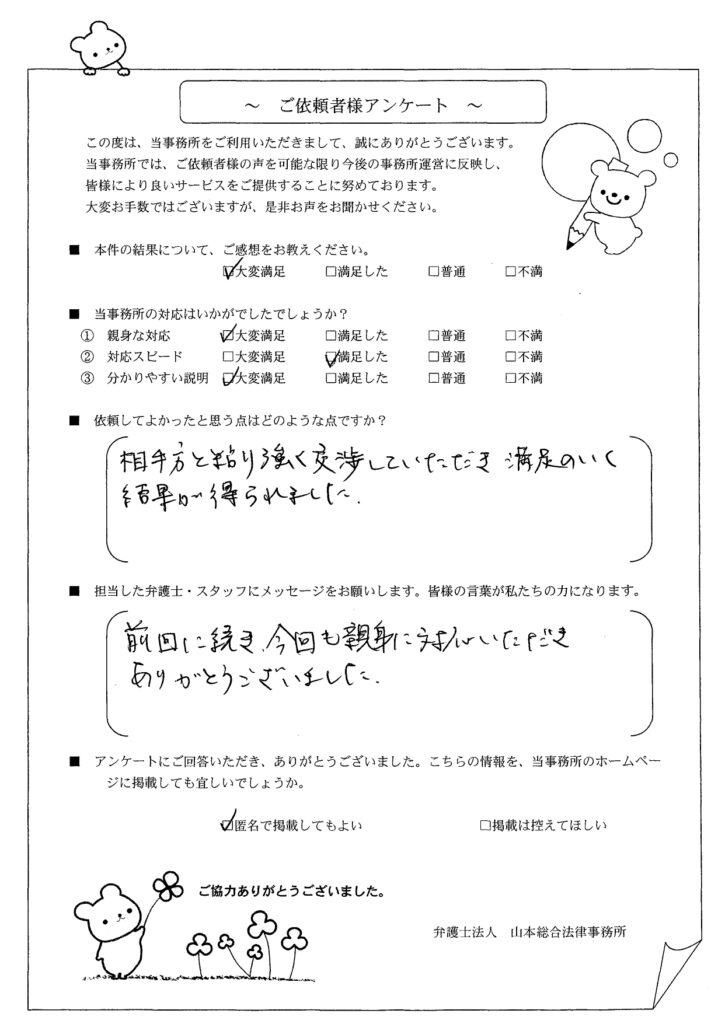 ～　ご依頼者様アンケート　～
この度は、当事務所をご利用いただきまして、誠にありがとうございます。
当事務所では、ご依頼者様の声を可能な限り今後の事務所運営に反映し、
皆様により良いサービスをご提供することに努めております。
大変お手数ではございますが、是非お声をお聞かせください。
■　本件の結果について、ご感想をお教えください。
☑大変満足　□満足した　□普通　□不満
■　当事務所の対応はいかがでしたでしょうか？
①　親身な対応　☑大変満足　□満足した　□普通　□不満
②　対応スピード　□大変満足　☑満足した　□普通　□不満
③　分かりやすい説明　☑大変満足　□満足した　□普通　□不満
■　依頼してよかったと思う点はどのような点ですか？
相手方と粘り強く交渉していただき満足のいく
結果が得られました.
■　担当した弁護士・スタッフにメッセージをお願いします。皆様の言葉が私たちの力になります。
前回に続き、今回も親身に対応いただき
ありがとうございました.
■　アンケートにご回答いただき、ありがとうございました。こちらの情報を、当事務所のホームペー
ジに掲載しても宜しいでしょうか。
☑匿名で掲載してもよい　□掲載は控えてほしい
ご協力ありがとうございました。
弁護士法人　山本総合法律事務所